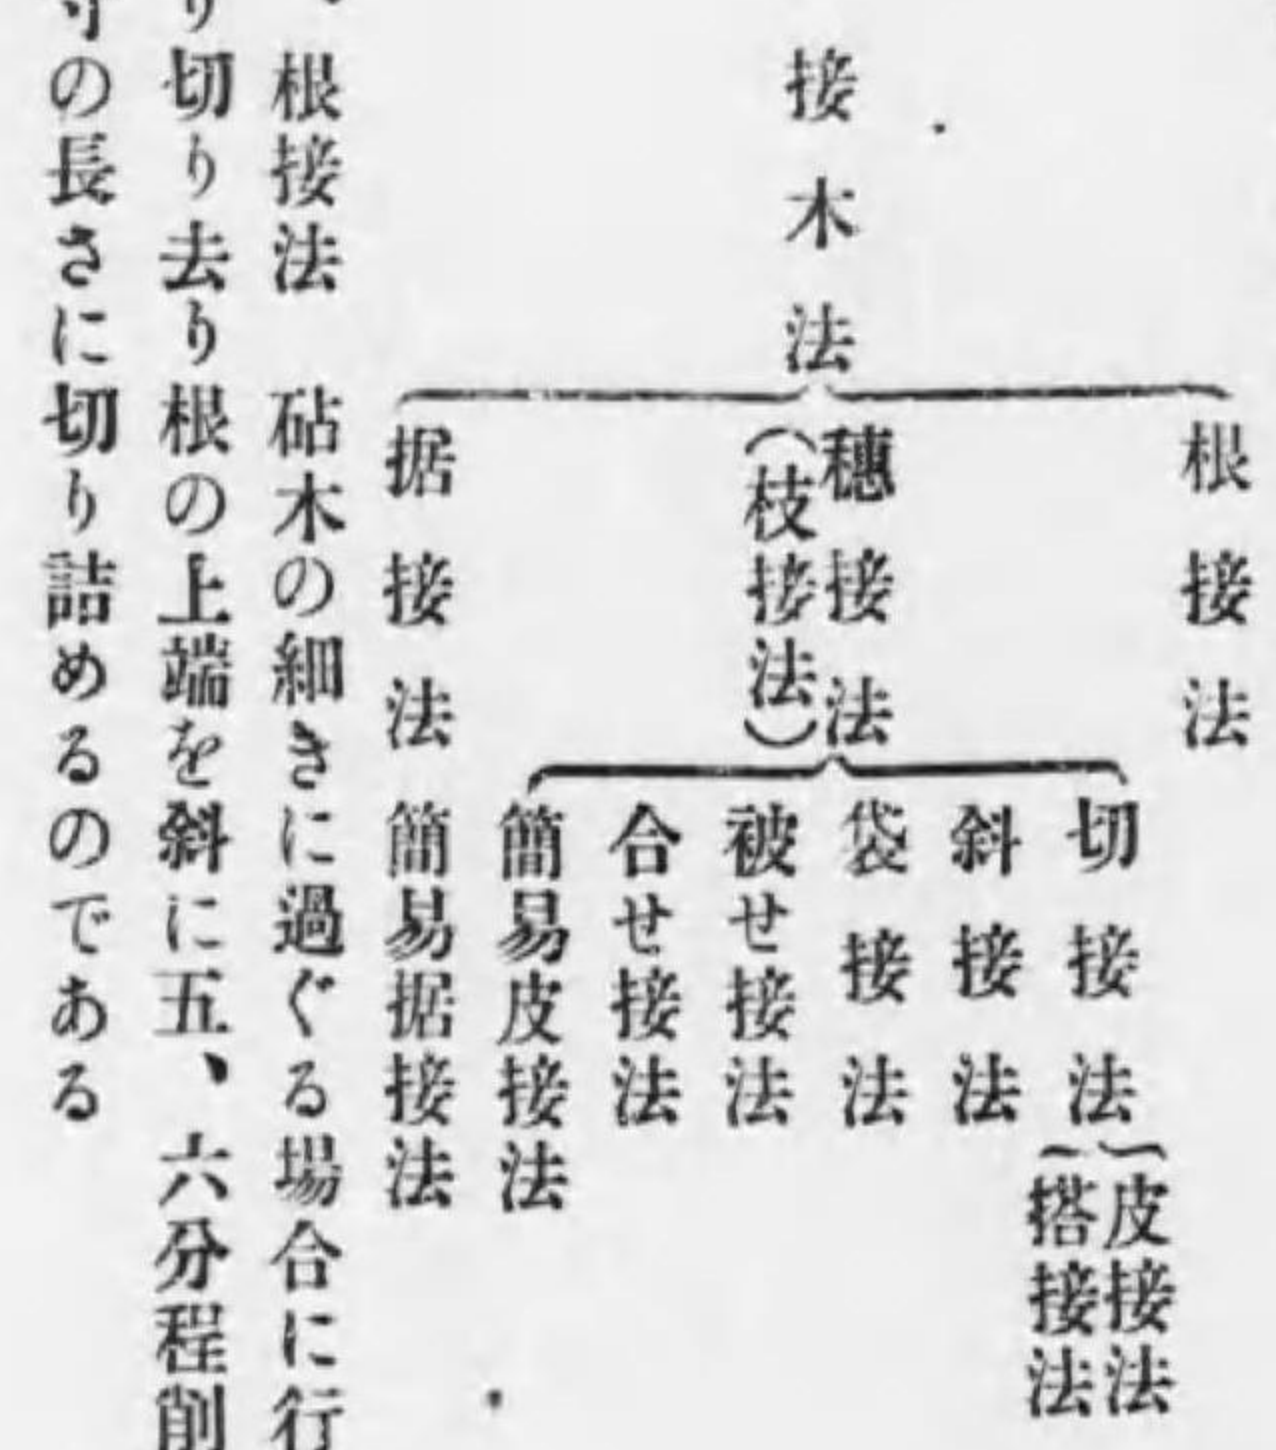 接木法
根接法
穗接法
(枝接法)
据接法
切接法
皮接法
搭接法
斜接法
袋接法
被せ接法
合せ接法
簡易皮接法
簡易据接法
、根接法　砧木の細きに過ぐる場合に行
り切り去り根の上端を斜に五、六分程削
寸の長さに切り詰めるのである